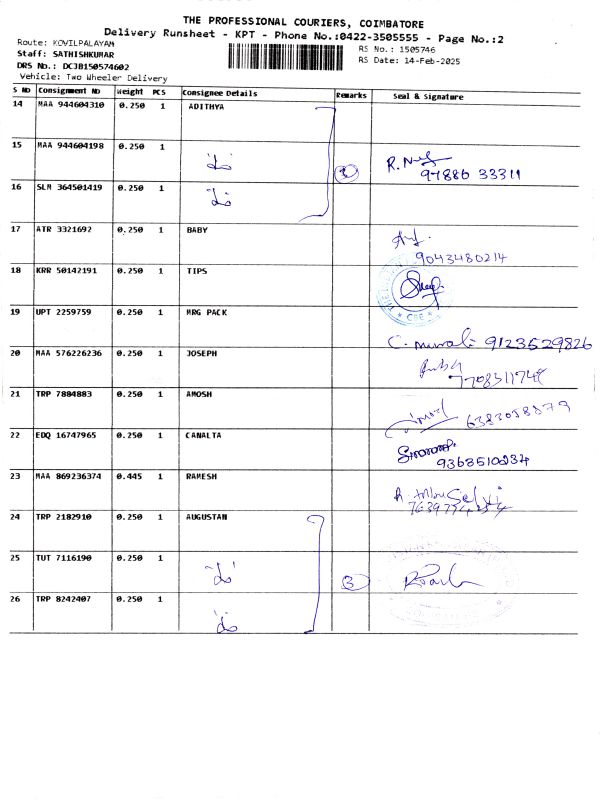 THE PROFESSIONAL COURIERS, COIMBATORE
Delivery Runsheet - KPT - Phone No.:0422-3505555 - Page No.:2
Route: KOVILPALAYAM
RS No.: 1505746
Staff: SATHISHKUMAR
RS Date: 14-Feb-2025
DRS No.: DCJB150574602
Vehicle: Two Wheeler Delivery
S NO Consignment NO Weight PCS Consignee Details Remarks Seal & Signature
14 MAA 944604310 0.250 1 ADITHYA
15 MAA 944604198 0.250 1
97886 33311
16 SLM 364501419 0.250 1
17 ATR 3321692 0.250 1 BABY
9043480214
18 KRR 50142191 0.250 1 TIPS
CBE
19 UPT 2259759 0.250 1 MRG PACK
C. murali 9123529826
20 MAA 576226236 0.250 1 JOSEPH
21 TRP 7884883 0.250 1 AMOSH
22 EDQ 16747965 0.250 1 CANALTA
9368510234
23 MAA 869236374 0.445 1 RAMESH
24 TRP 2182910 0.250 1 AUGUSTAN
25 TUT 7116190 0.250 1 3
26 TRP 8242407 0.250 1